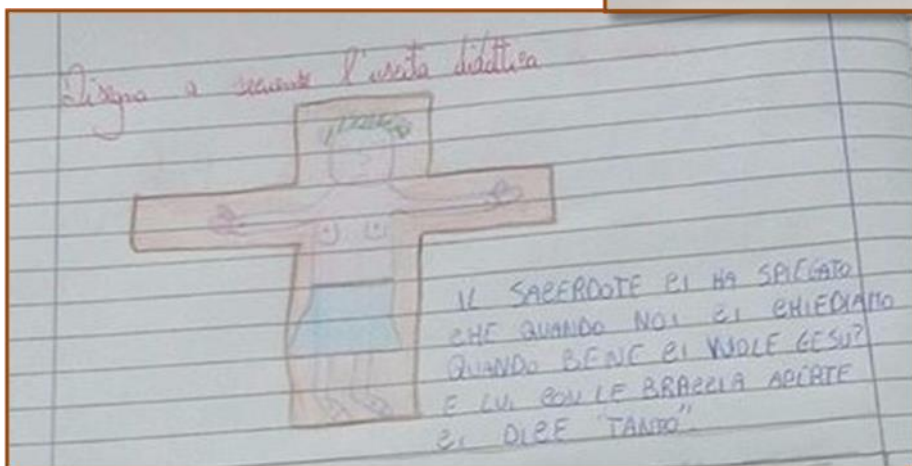 Disegna a seconda l'uscita didattica
IL SACERDOTE CI HA SPIEGATO
CHE QUANDO NOI CI CHIEDIAMO
QUANDO BENE CI VUOLE GESU?
E LUI CON LE BRACCIA APERTE
CI DICE "TANTO".